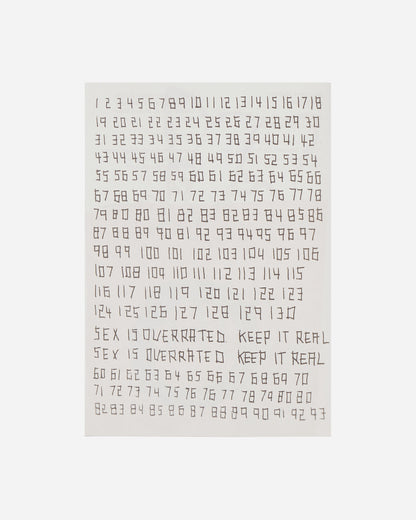 1 2 3 4 5 6 7 8 9 10 11 12 13 14 15 16 17 18
19 20 21 22 23 24 25 26 27 28 29 30
31 32 33 34 35 36 37 38 39 40 41 42
43 44 45 46 47 48 49 50 51 52 53 54
55 56 57 58 59 60 61 62 63 64 65 66
67 68 69 70 71 72 73 74 75 76 77 78
79 80 80 81 82 83 82 83 84 85 86
87 88 89 90 81 92 93 94 95 96 97
98 99 100 101 102 103 104 105 106
107 108 109 110 111 112 113 114 115
116 117 118 119 120 121 122 123
124 125 126 127 128 129 130
SEX IS OVERRATED KEEP IT REAL
SEX IS OVERRATED KEEP IT REAL
60 61 62 63 64 65 66 67 68 69 70
71 72 73 74 75 76 76 77 78 79 80 80
82 83 84 85 86 87 88 89 90 91 92 93